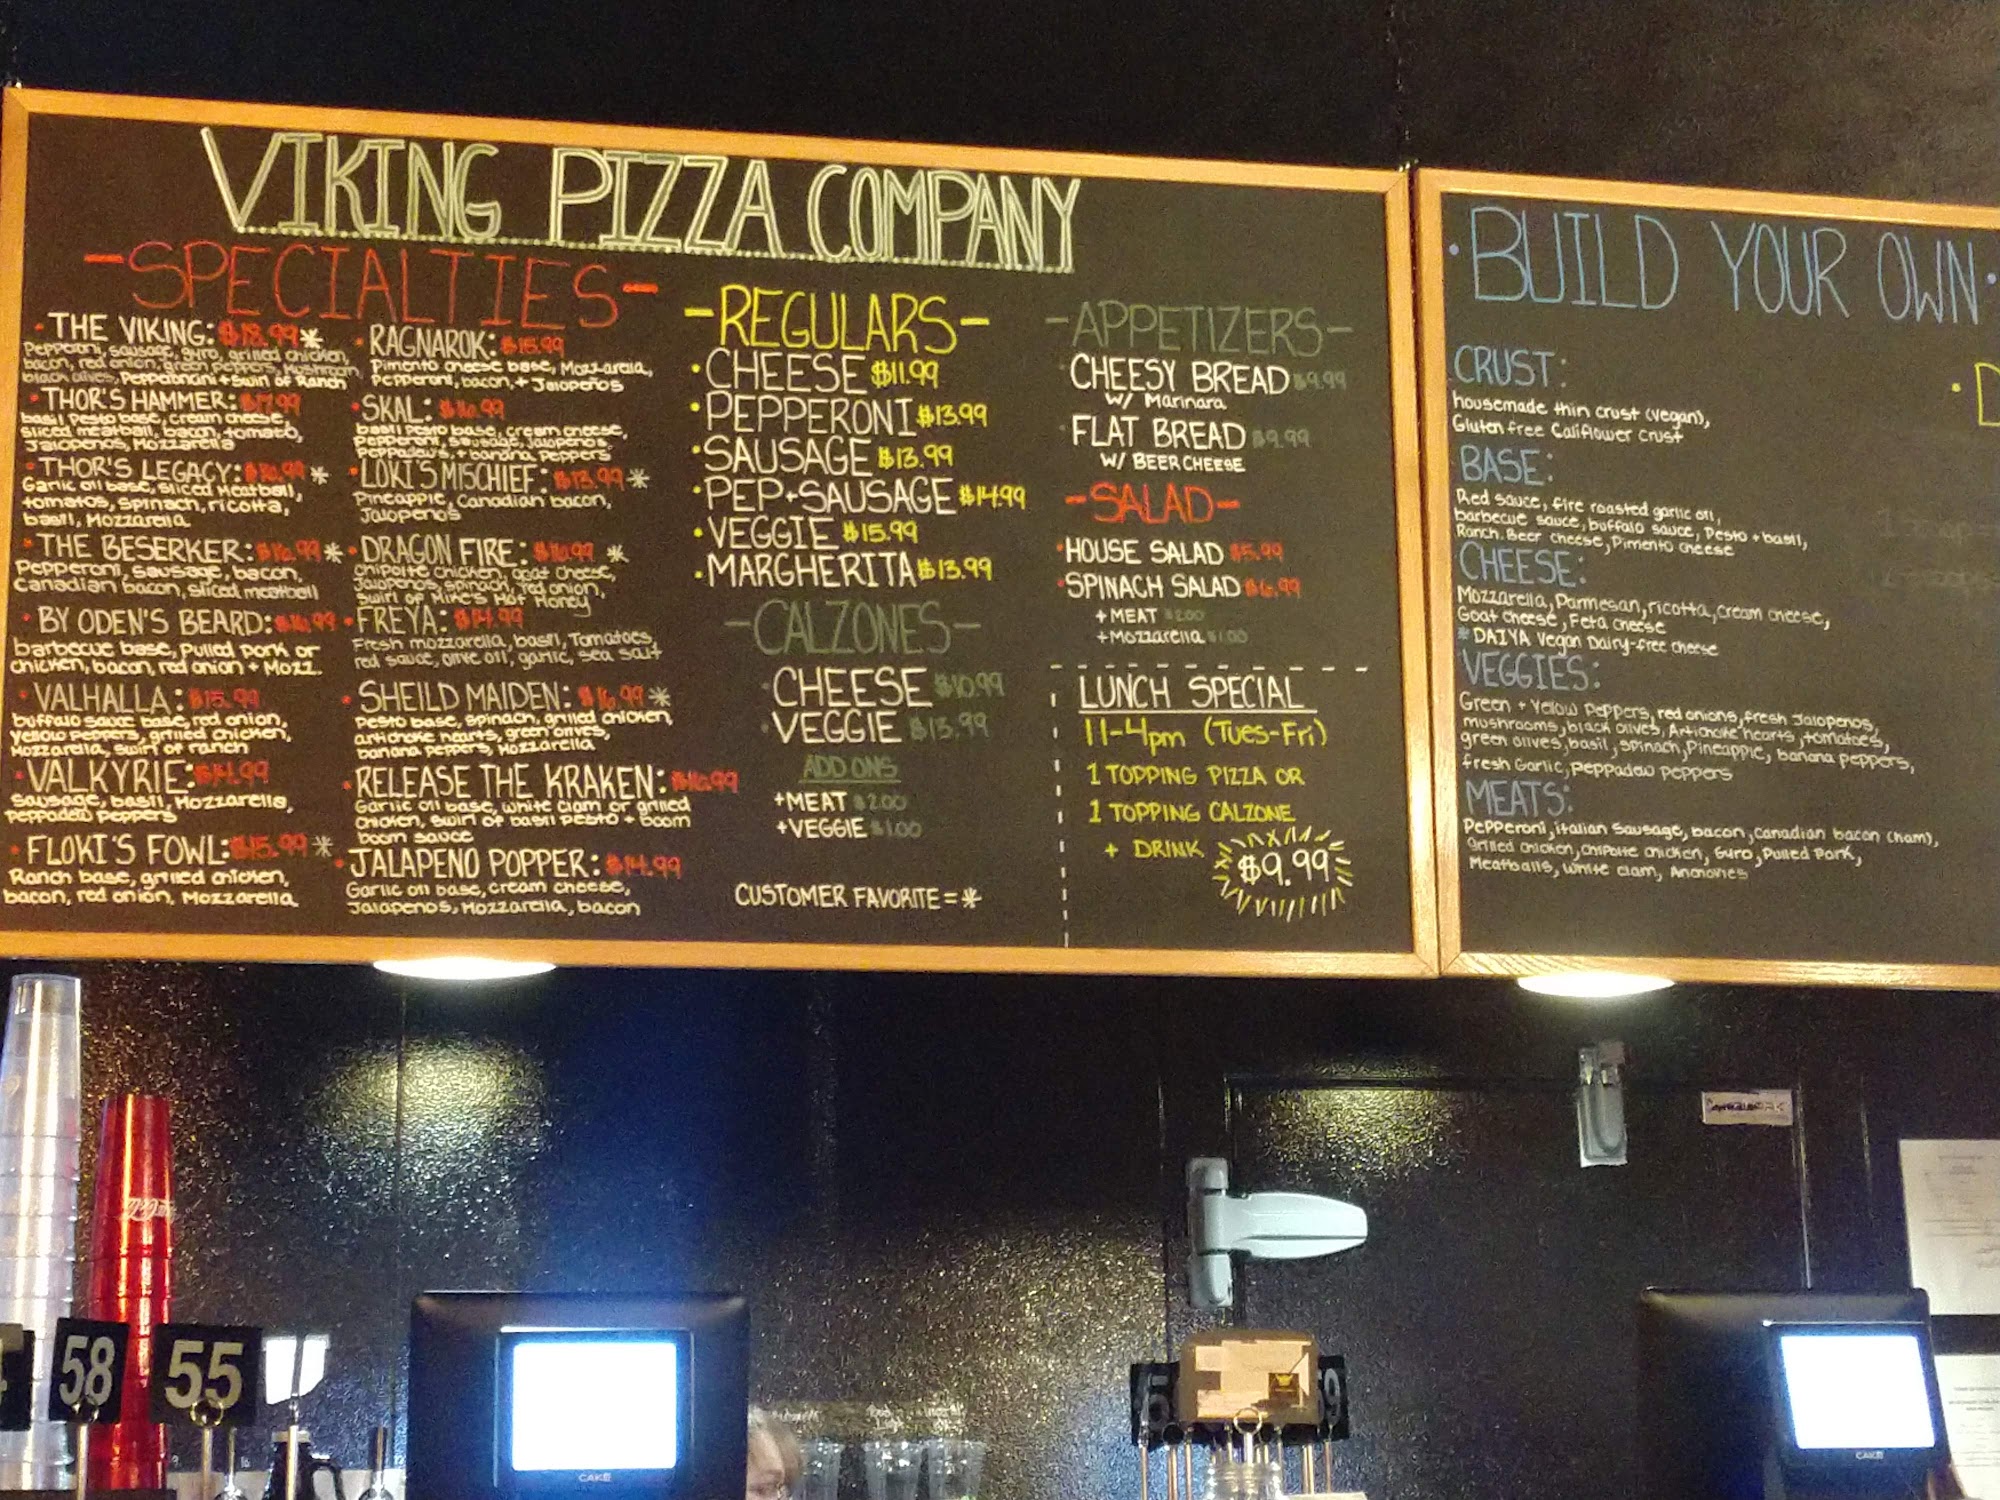 VIKING PIZZA COMPANY
-SPECIALTIES-
• THE VIKING: $18.99 *
Pepperoni, sausage, gyro, grilled chicken,
bacon, red onion, green peppers, Mushroom,
black olives, Pepperoncini + swirl of Ranch
• THOR'S HAMMER: $17.99
basil Pesto base, cream cheese,
sliced meatball, bacon, tomato,
Jalopenos, Mozzarella
• THOR'S LEGACY: $16.99 *
Garlic oil base, sliced Meatball,
tomatos, spinach, ricotta,
basil, Mozzarella
• THE BESERKER: $16.99 *
Pepperoni, sausage, bacon,
Canadian bacon, sliced meatball
• BY ODEN'S BEARD: $16.99
barbecue base, Pulled Pork or
chicken, bacon, red onion + Mozz.
• VALHALLA: $15.99
buffalo sauce base, red onion,
yellow peppers, grilled chicken,
Mozzarella, swirl of ranch
• VALKYRIE: $14.99
Sausage, basil, Mozzarella,
Peppadew Peppers
• FLOKI'S FOWL: $15.99 *
Ranch base, grilled chicken,
bacon, red onion, Mozzarella
• RAGNAROK: $15.99
Pimento cheese base, Mozzarella,
Pepperoni, bacon, + Jalopeños
• SKAL: $16.99
basil Pesto base, cream cheese,
Pepperoni, sausage, Jalopenos,
Peppadews, + banana Peppers
• LOKI'S MISCHIEF: $13.99 *
Pineapple, Canadian bacon,
Jalopenos
• DRAGON FIRE: $16.99 *
chipolte chicken, goat cheese,
Jalopenos, spinach, red onion,
swirl of Mike's Hot Honey
• FREYA: $14.99
Fresh mozzarella, basil, Tomatoes,
red sauce, olive oil, garlic, sea salt
• SHEILD MAIDEN: $16.99 *
Pesto base, spinach, grilled chicken,
artichoke hearts, green olives,
banana Peppers, Mozzarella
• RELEASE THE KRAKEN: $16.99
Garlic oil base, white clam or grilled
chicken, swirl of basil Pesto + boom
boom sauce
• JALAPENO POPPER: $14.99
Garlic oil base, cream cheese,
Jalapenos, Mozzarella, bacon
-REGULARS-
• CHEESE $11.99
• PEPPERONI $13.99
• SAUSAGE $13.99
• PEP+SAUSAGE $14.99
• VEGGIE $15.99
• MARGHERITA $13.99
-CALZONES-
• CHEESE $10.99
• VEGGIE $13.99
ADD ONS
+MEAT $2.00
+VEGGIE $1.00
CUSTOMER FAVORITE = *
-APPETIZERS-
CHEESY BREAD $9.99
W/ Marinara
FLAT BREAD $9.99
W/ BEER CHEESE
-SALAD-
• HOUSE SALAD $5.99
• SPINACH SALAD $6.99
+MEAT $2.00
+Mozzarella $1.00
LUNCH SPECIAL
11-4pm (Tues-Fri)
1 TOPPING PIZZA OR
1 TOPPING CALZONE
+ DRINK $9.99
• BUILD YOUR OWN •
CRUST:
housemade thin crust (vegan),
Gluten free Califlower crust
BASE:
Red sauce, fire roasted garlic oil,
barbecue sauce, buffalo sauce, Pesto + basil,
Ranch, Beer cheese, Pimento cheese
CHEESE:
Mozzarella, Parmesan, ricotta, cream cheese,
Goat cheese, Feta cheese
* DAIYA Vegan Dairy-free cheese
VEGGIES:
Green + Yellow Peppers, red onions, fresh Jalopenos,
mushrooms, black olives, Artichoke hearts, tomatoes,
green olives, basil, spinach, Pineapple, banana peppers,
fresh Garlic, peppadew peppers
MEATS:
Pepperoni, italian sausage, bacon, canadian bacon (ham),
grilled chicken, chipolte chicken, Gyro, Pulled Pork,
Meatballs, white clam, Anchovies
58
55
CAKE
CAKE